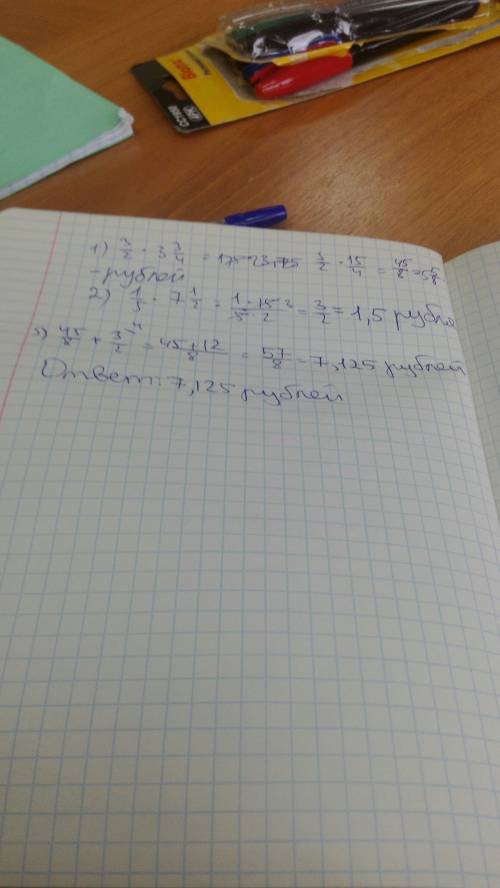 1) 3/2 · 3 3/4 = 3/2 · 15/4 = 45/8 = 5 5/8
- рублей
2) 1/5 · 7 1/2 = 1 · 15 / 5 · 2 = 3/2 = 1,5 рубля
3) 45/8 + 3/2 = 45+12/8 = 57/8 = 7,125 рублей
Ответ: 7,125 рублей